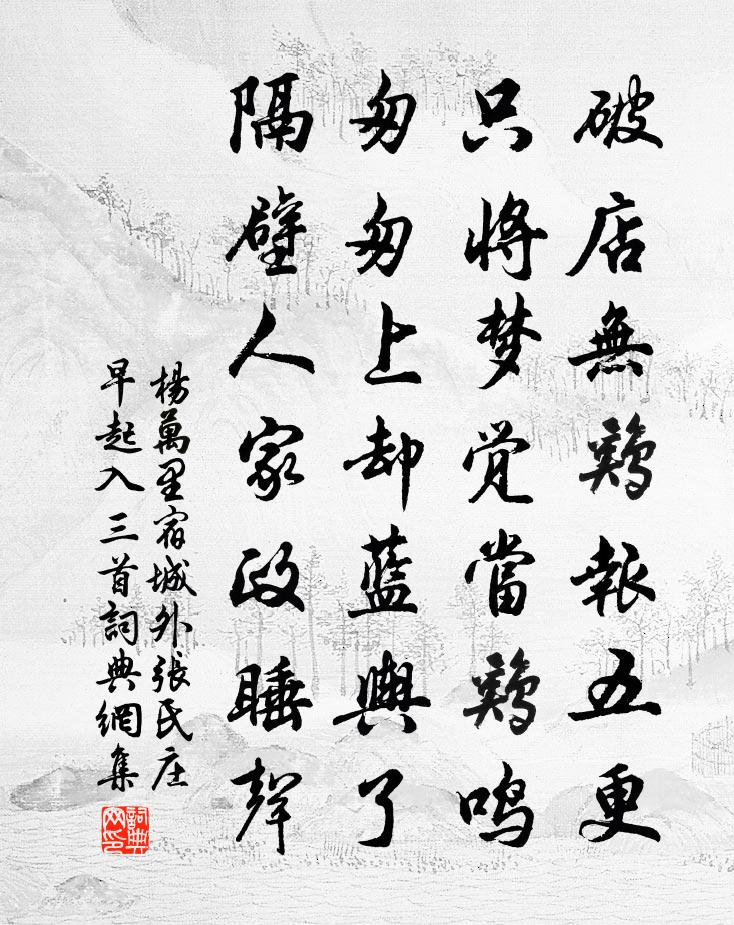 破店無鷄報五更
只将梦觉當鷄鸣
匆匆上却藍輿了
隔壁人家政睡聲
楊萬里宿城外張氏庄
早起入三首詞典網集
詞典
网印